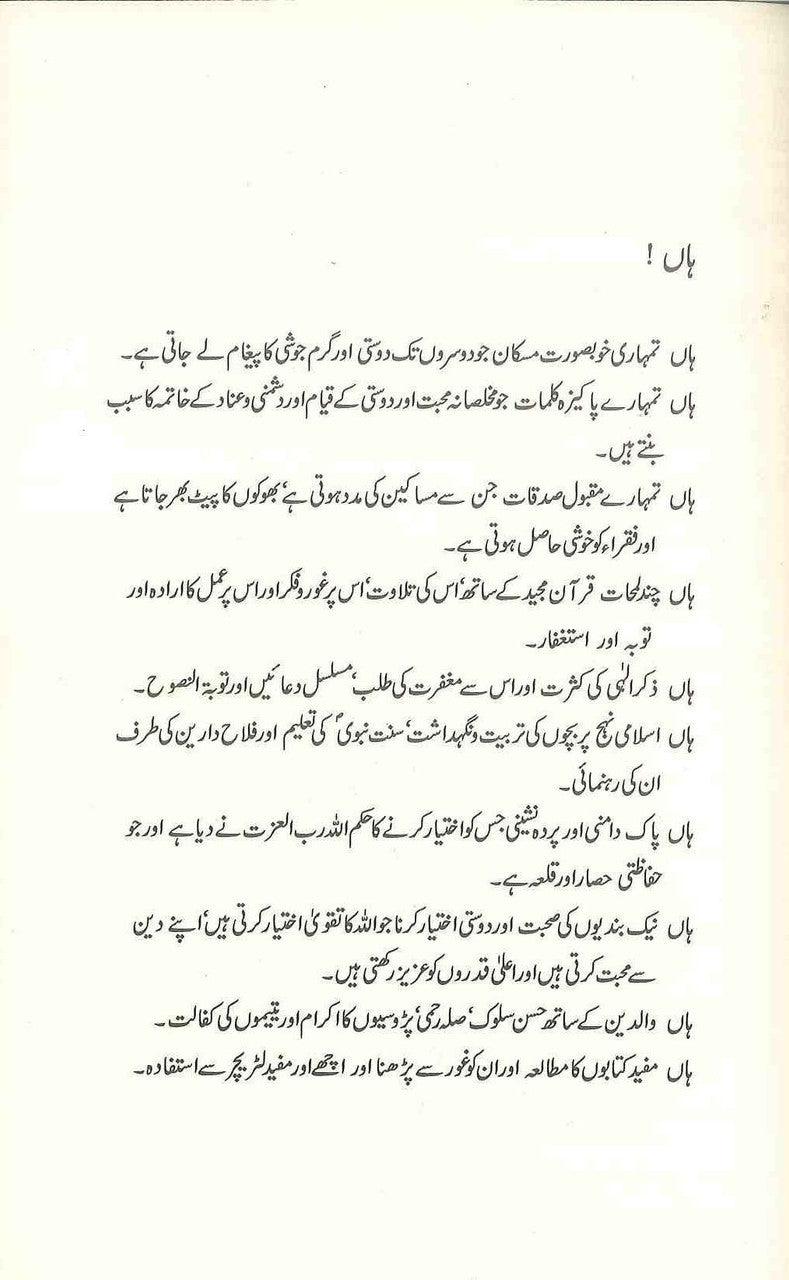 ہاں !
ہاں تمہاری خوبصورت مسکان جو دوسروں تک دوستی اور گرم جوشی کا پیغام لے جاتی ہے۔
ہاں تمہارے پاکیزہ کلمات جو مخلصانہ محبت اور دوستی کے قیام اور دشمنی و عناد کے خاتمہ کا سبب
بنتے ہیں۔
ہاں تمہارے مقبول صدقات جن سے مساکین کی مدد ہوتی ہے، بھوکوں کا پیٹ بھر جاتا ہے
اور فقراء کو خوشی حاصل ہوتی ہے۔
ہاں چند لمحات قرآن مجید کے ساتھ، اس کی تلاوت، اس پر غور و فکر اور اس پر عمل کا ارادہ اور
توبہ اور استغفار۔
ہاں ذکر الٰہی کی کثرت اور اس سے مغفرت کی طلب، مسلسل دعائیں اور توبۃ النصوح۔
ہاں اسلامی نہج پر بچوں کی تربیت و نگہداشت، سنت نبویؐ کی تعلیم اور فلاح دارین کی طرف
ان کی رہنمائی۔
ہاں پاک دامنی اور پردہ نشینی جس کو اختیار کرنے کا حکم اللہ رب العزت نے دیا ہے اور جو
حفاظتی حصار اور قلعہ ہے۔
ہاں نیک بندیوں کی صحبت اور دوستی اختیار کرنا جو اللہ کا تقویٰ اختیار کرتی ہیں، اپنے دین
سے محبت کرتی ہیں اور اعلیٰ قدروں کو عزیز رکھتی ہیں۔
ہاں والدین کے ساتھ حسن سلوک، صلہ رحمی، پڑوسیوں کا اکرام اور یتیموں کی کفالت۔
ہاں مفید کتابوں کا مطالعہ اور ان کو غور سے پڑھنا اور اچھے اور مفید لٹریچر سے استفادہ۔